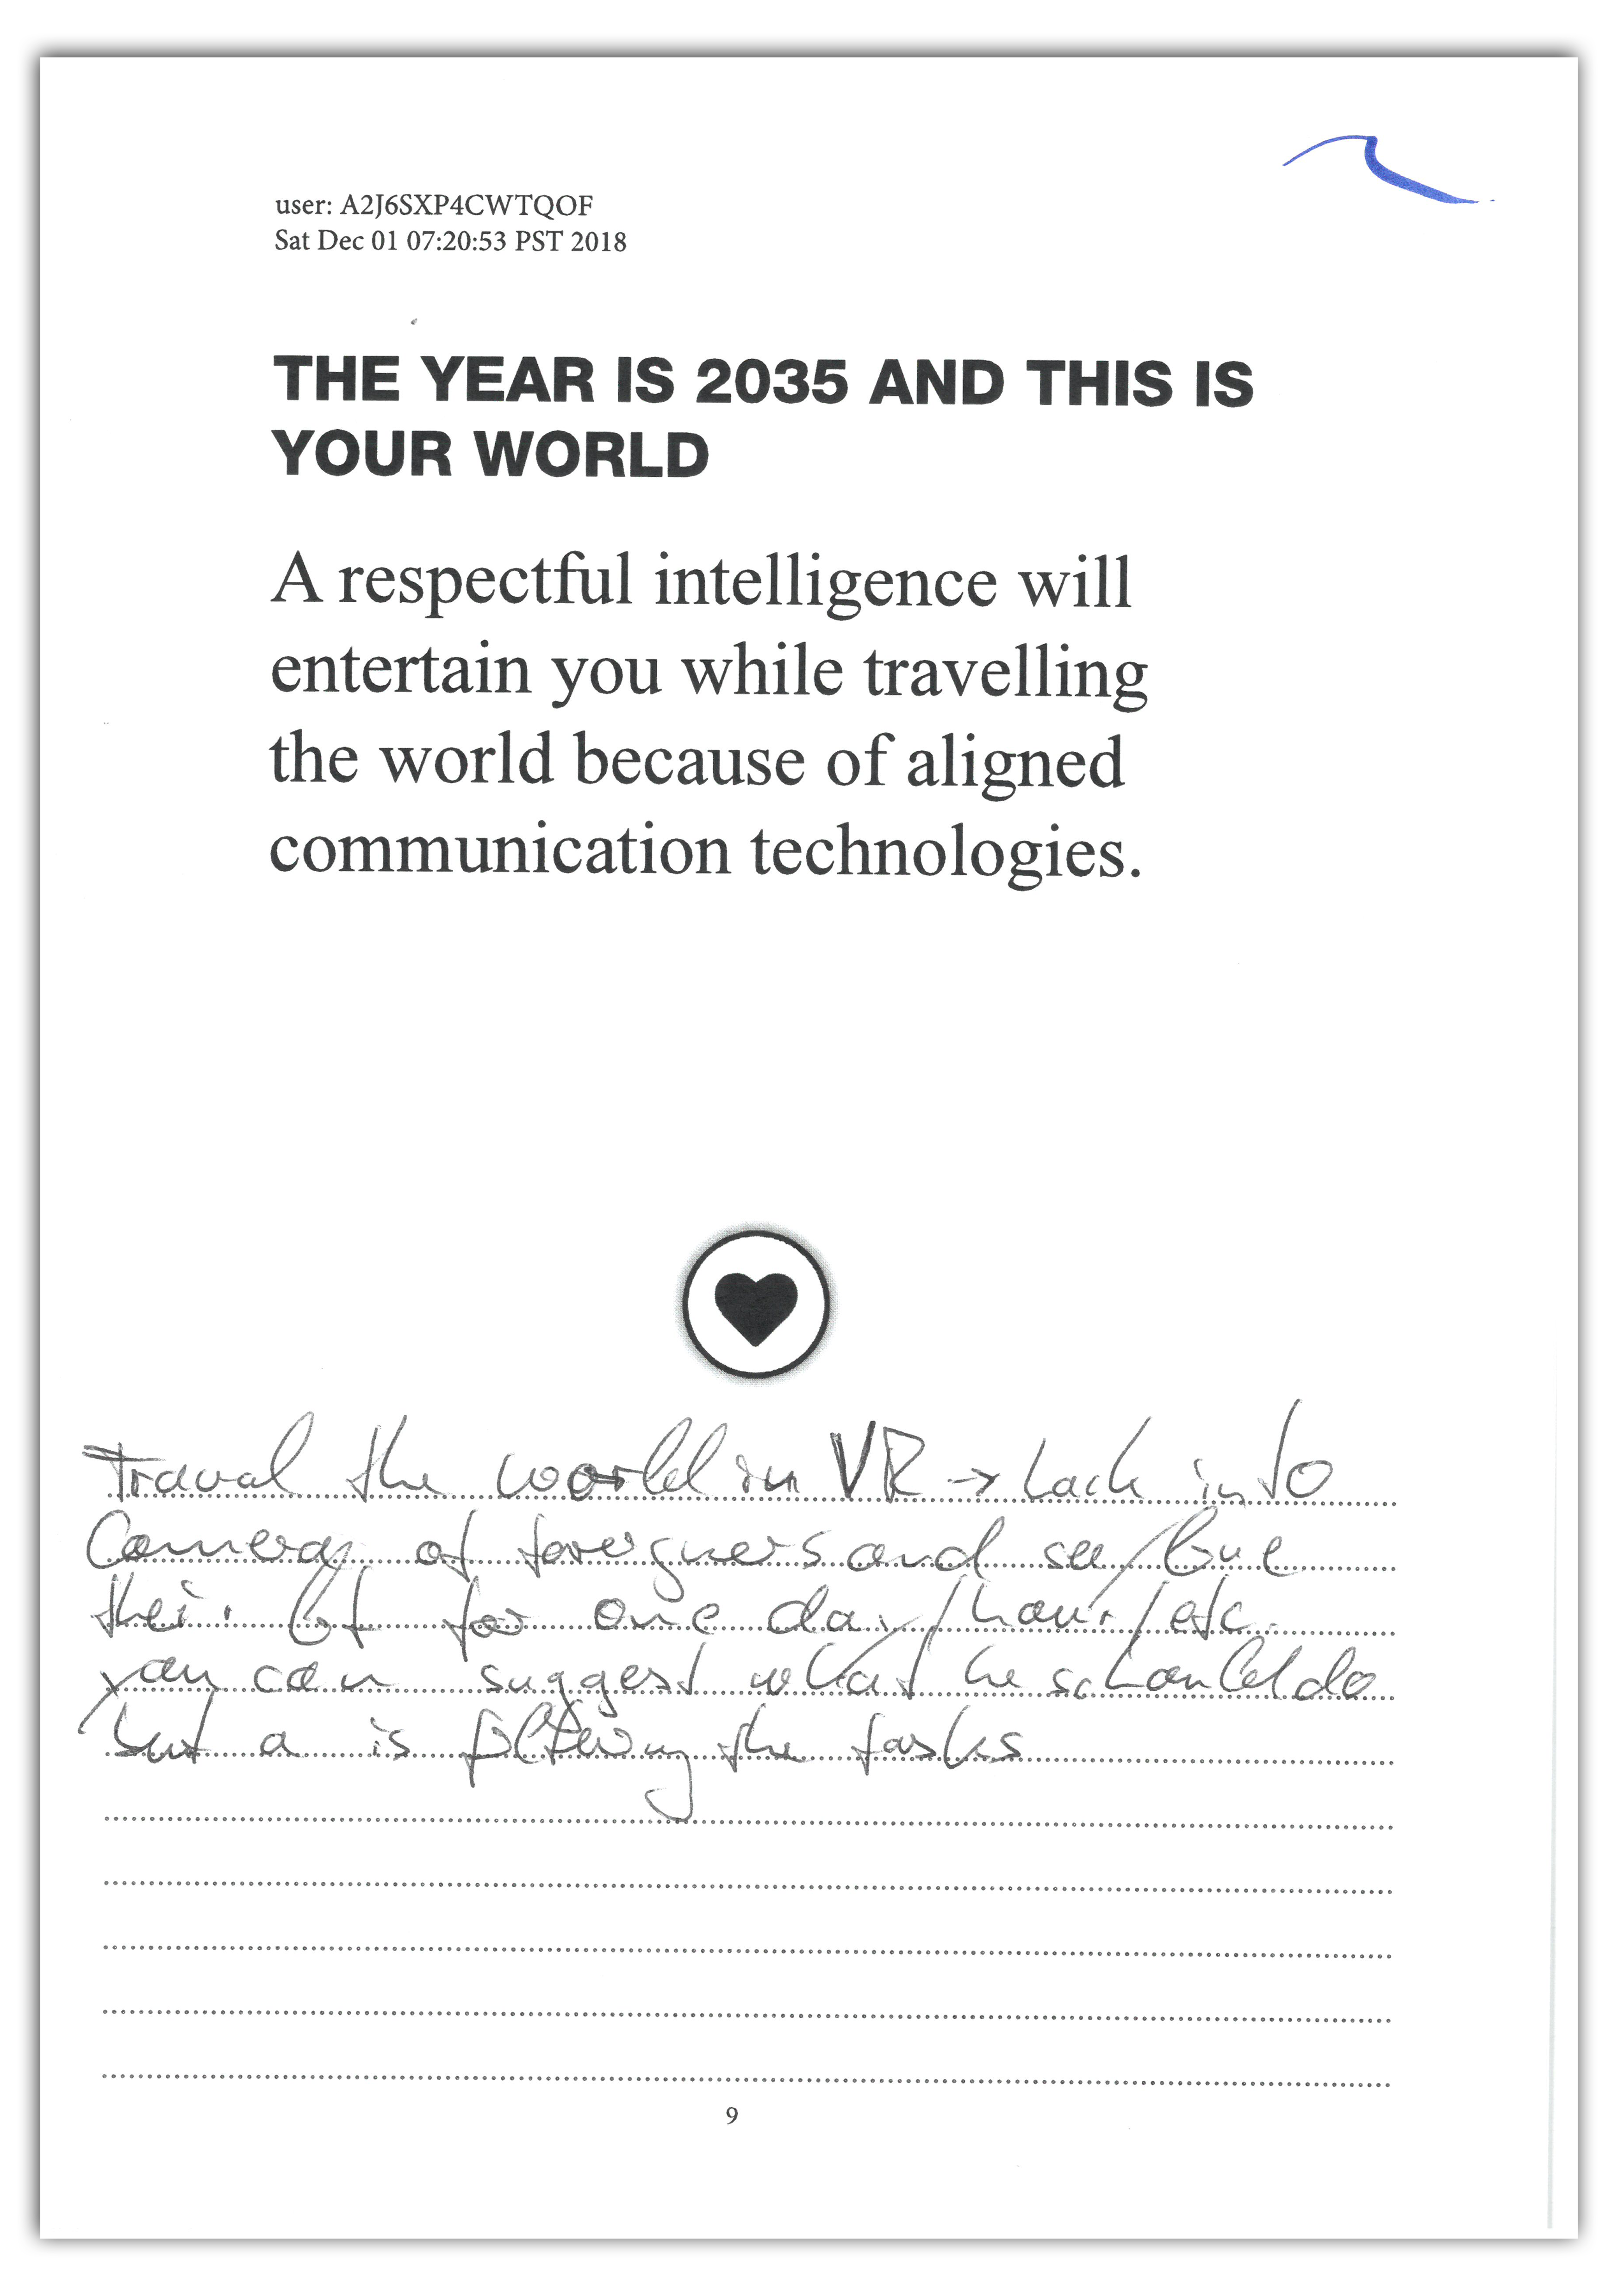 user: A2J6SXP4CWTQOF
Sat Dec 01 07:20:53 PST 2018
THE YEAR IS 2035 AND THIS IS
YOUR WORLD
A respectful intelligence will
entertain you while travelling
the world because of aligned
communication technologies.
Traval the world in VR → Lack into
Camera of foreigners and see/live
their for one day/hour/etc.
you can suggest what he schould do
but a is filtering the tasks
9